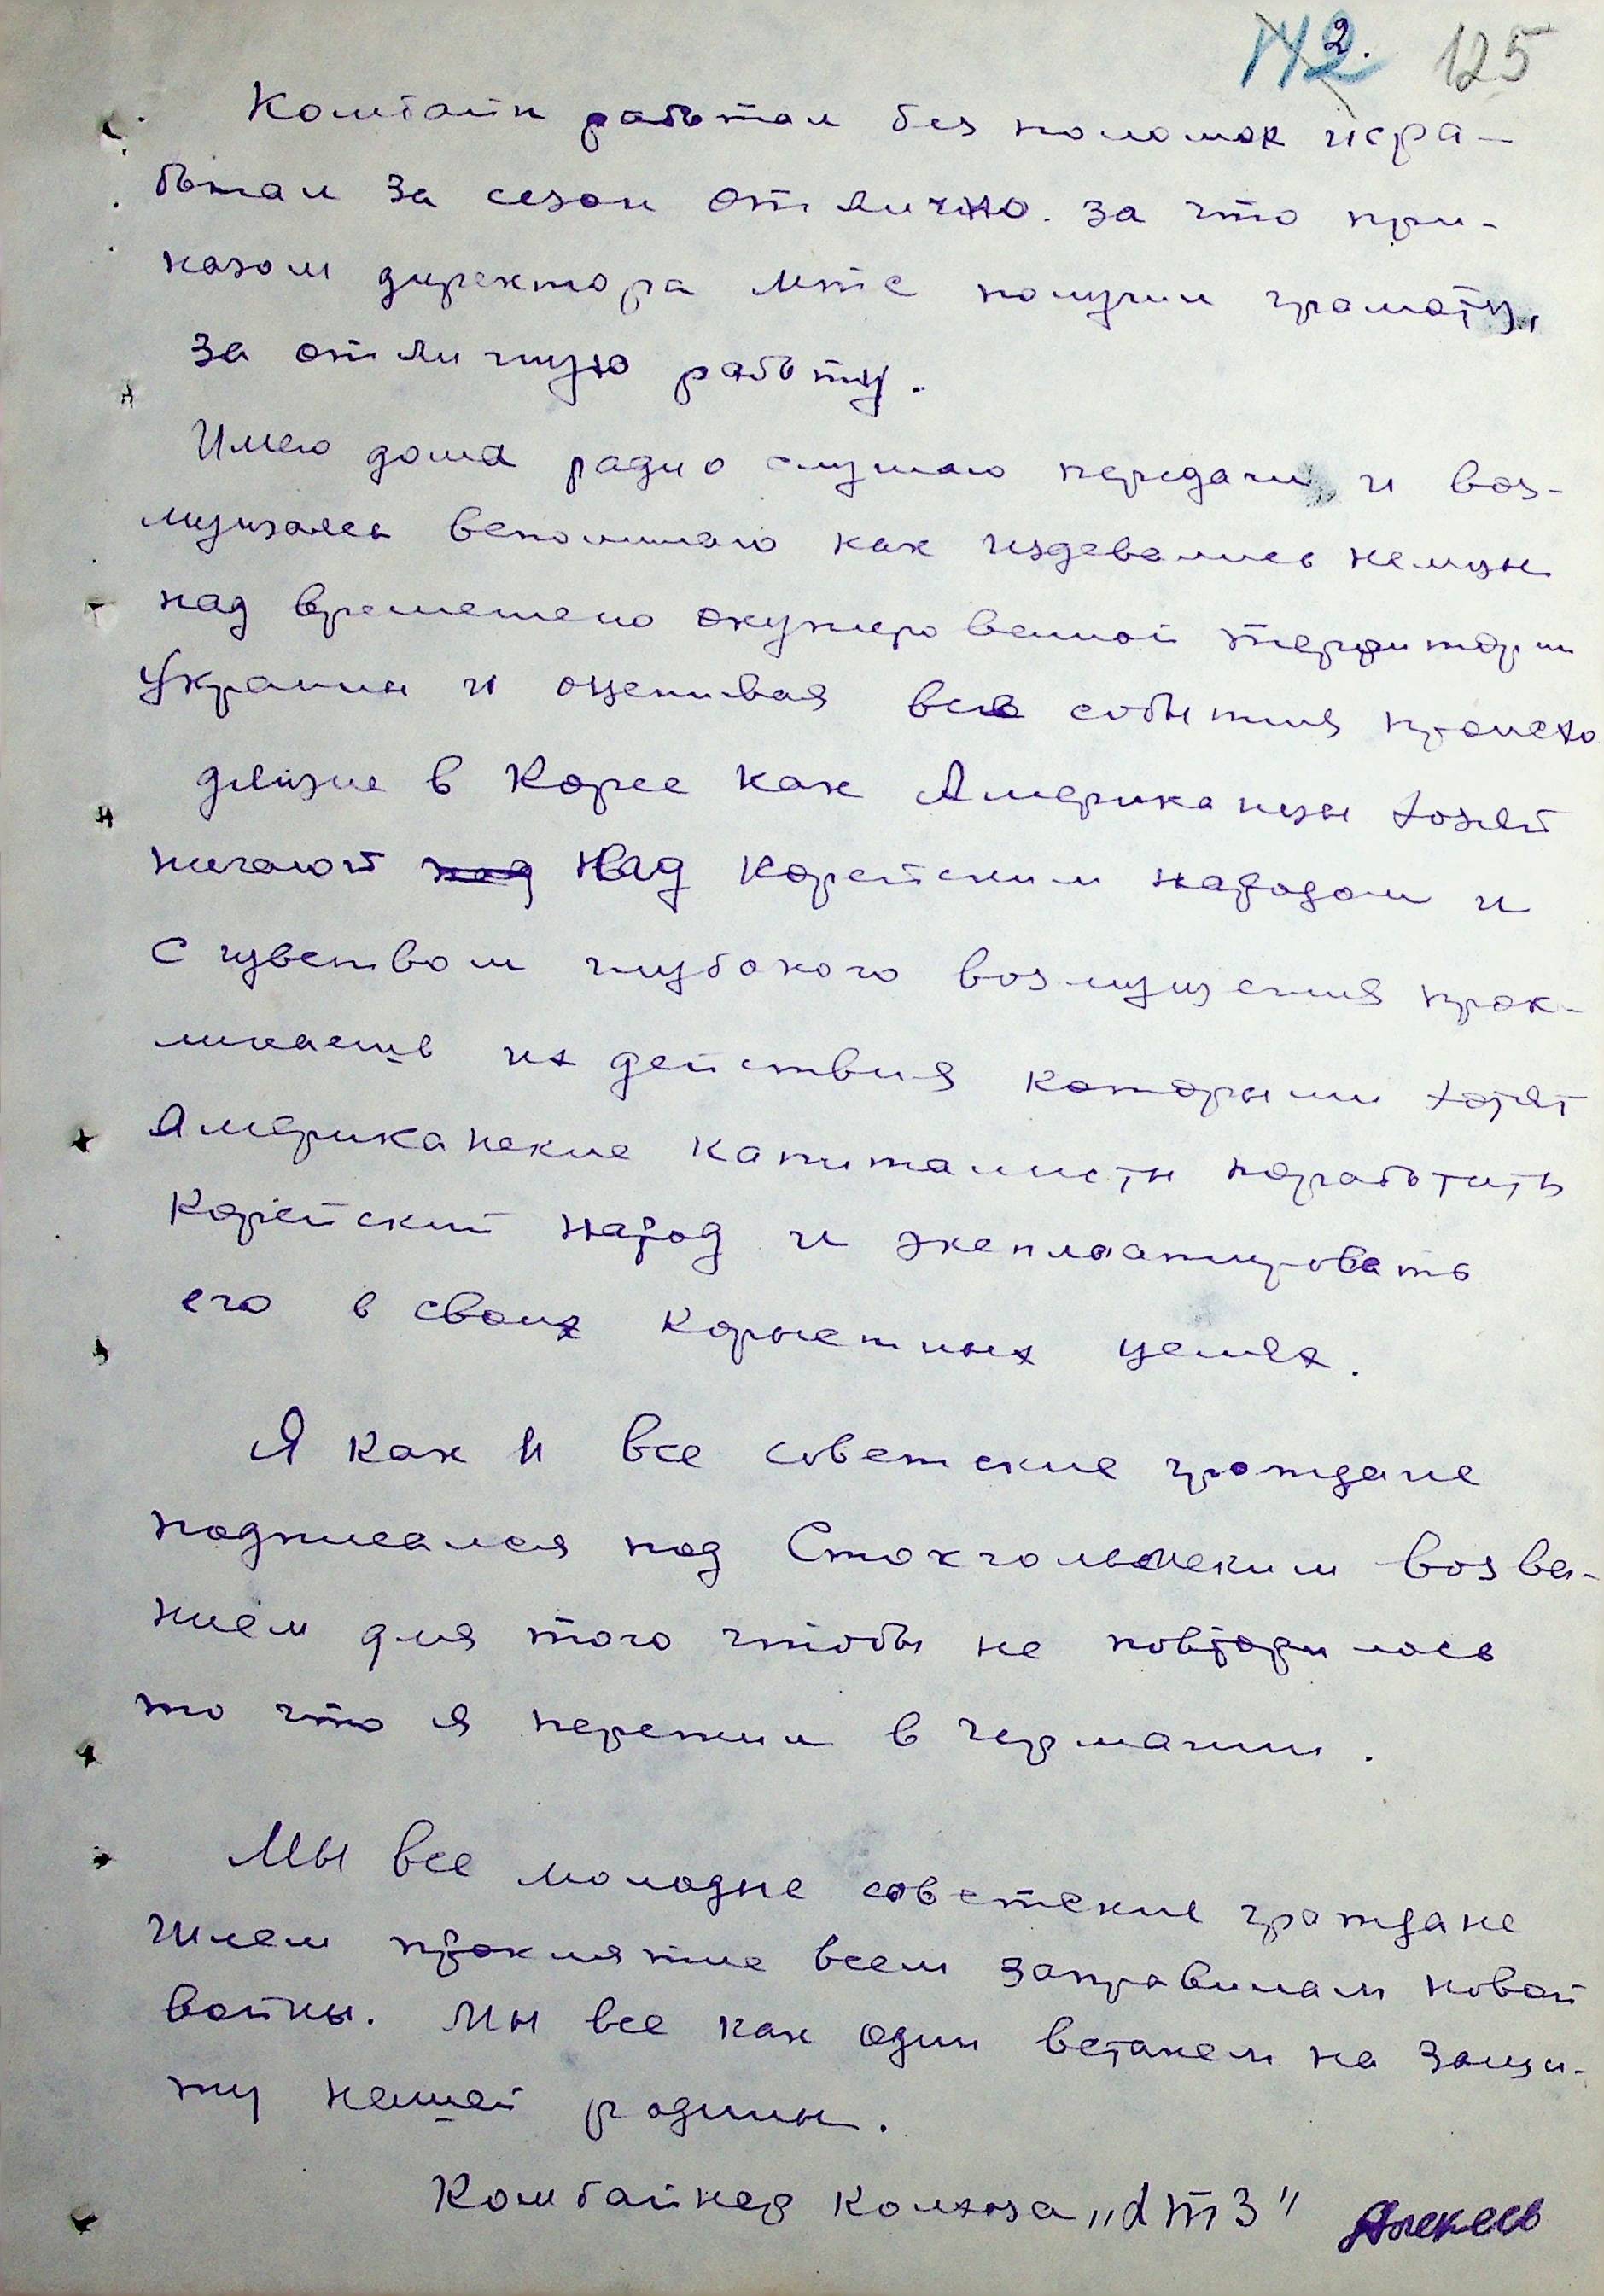 142. 125
Комбайн работал без поломок и сра-
ботал за сезон отлично. за что при-
казом директора мтс получил грамоту,
за отличную работу.
Имею дома радио слушаю передачи и воз-
мущаясь вспоминаю как издевались немцы
над временено окупированной территории
Украины и оценивая все события происхо
дящие в Корее как Американцы хозяй
ничают над над Корейским народом и
с чувством глубокого возмущения прок-
линаешь их действия которыми хотят
Американские капиталисты поработить
Корейский народ и эксплоатировать
его в своих корыстных целях.
Я как и все советские граждане
подписался под Стокгольмским возва-
нием для того чтобы не повторилось
то что я пережил в германии.
Мы все молодые советские граждане
шлем проклятие всем заправилам новой
войны. Мы все как один встанем на защи-
ту нашей родины.
Комбайнер колхоза „ХТЗ" Алексеев